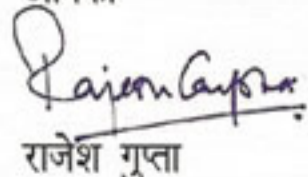 Rajesh Gupta
राजेश गुप्ता